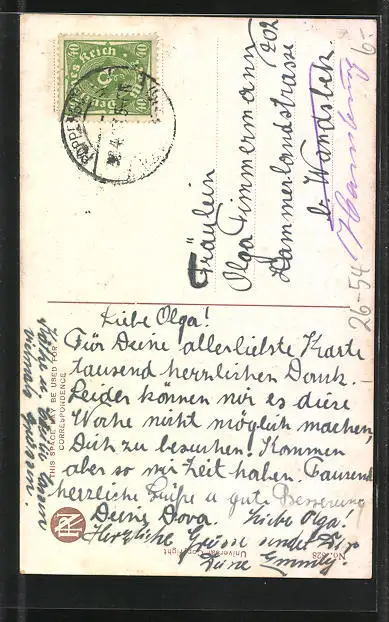 Fräulein
Olga Timmermann
Hammerlandstrasse 202
b. Wandsbek
Hamburg
Liebe Olga!
Für Deine allerliebste Karte
tausend herzlichen Dank.
Leider können wir es diese
Woche nicht möglich machen,
Dich zu besuchen. Kommen
aber so wir Zeit haben. Tausend
herzliche Grüße u gute Besserung
Deine Dora. Liebe Olga!
Herzliche Grüsse sendet Dir
Deine Emmily.
THIS SPACE MAY BE USED FOR
CORRESPONDENCE
Universal Copyright
26-54
40
40